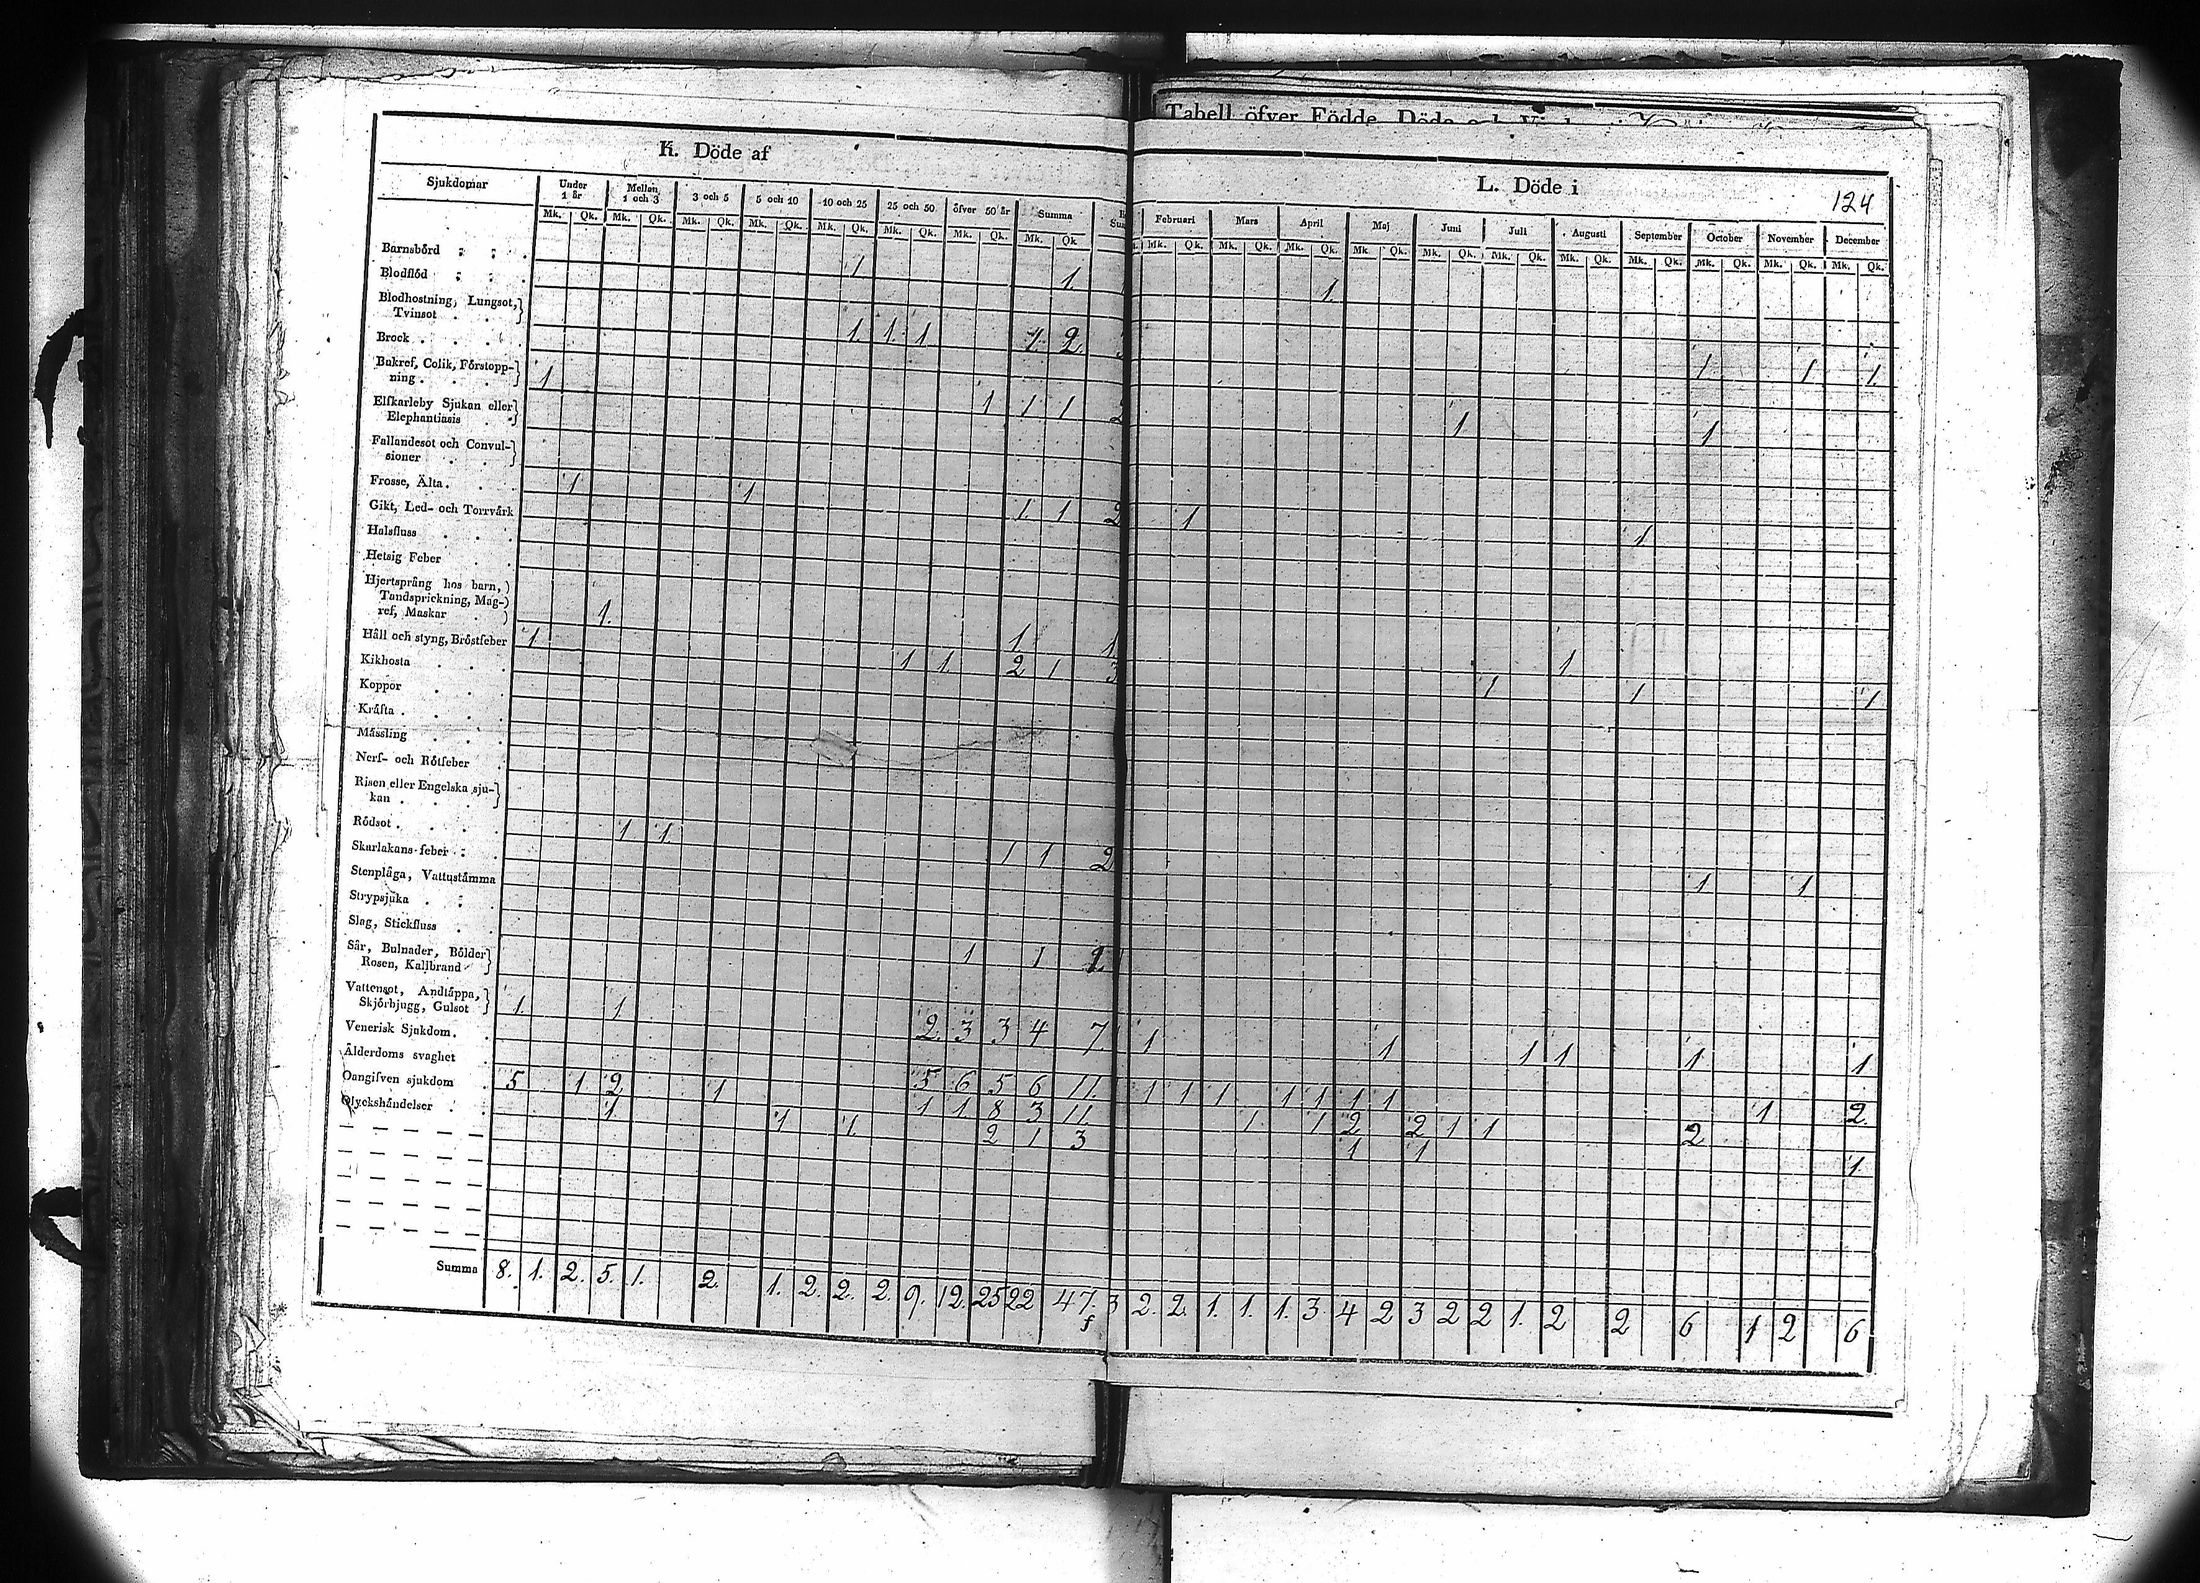 Tabell öfver Födde, Döde och
K. Döde af
L. Döde i
124
Sjukdomar
Under 1 år
Mellan 1 och 3
3 och 5
5 och 10
10 och 25
25 och 50
öfver 50 år
Summa
Februari
Mars
April
Maj
Juni
Juli
Augusti
September
October
November
December
Mk. Qk. Mk. Qk. Mk. Qk. Mk. Qk. Mk. Qk. Mk. Qk. Mk. Qk. Mk. Qk.
Mk. Qk. Mk. Qk. Mk. Qk. Mk. Qk. Mk. Qk. Mk. Qk. Mk. Qk. Mk. Qk. Mk. Qk. Mk. Qk. Mk. Qk.
Barnsbörd
Blodflöd 1 1. 1.
Blodhostning, Lungsot,
Tvinsot
Brock 1. 1. 1 1. 2. 1 1 1.
Bukref, Colik, Förstopp-
ning 1
Elfkarleby Sjukan eller
Elephantiasis 1 1 1 2 1 1
Fallandesot och Convul-
sioner
Frosse, Älta 1 1
Gikt, Led- och Torrvärk 1. 1 2 1
Halsfluss 1
Hetsig Feber
Hjertsprång hos barn,
Tandsprickning, Mag-
ref, Maskar 1.
Håll och styng, Bröstfeber 1 1 1 1
Kikhosta 1 1 2 1 3 1 1 1
Koppor
Kräfta
Mässling
Nerf- och Rötfeber
Risen eller Engelska sju-
kan
Rödsot 1 1
Skarlakans-feber 1 1 2 1 1
Stenplåga, Vattustämma
Strypsjuka
Slag, Stickfluss
Sår, Bulnader, Bölder
Rosen, Kallbrand 1 1
Vattensot, Andtäppa,
Skjörbjugg, Gulsot 1. 1
Venerisk Sjukdom 2. 3 3 4 7 1 1 1 1 1 1
Ålderdoms svaghet
Oangifven sjukdom 5 1 2 1 5 6 5 6 11. 1 1 1 1 1 1 1 1 2.
Olyckshändelser 1 1 1. 1 1 8 3 11. 1 1 2 2 1 1 2
2 1 3 1 1 1
Summa 8. 1. 2. 5. 1. 2. 1. 2. 2. 2. 9. 12. 25 22 47. 3 2. 2. 1. 1. 1. 3 4 2 3 2 2 1. 2 2 6 1 2 6